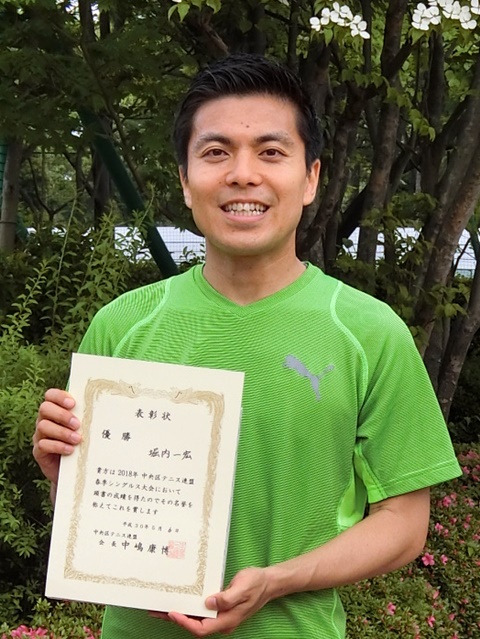 表彰状
優勝
堀内一宏
貴方は2018年 中央区テニス連盟
春季シングルス大会において
頭書の成績を得たのでその名誉を
称えてこれを賞します
平成30年5月吉日
中央区テニス連盟
会長 中嶋康博